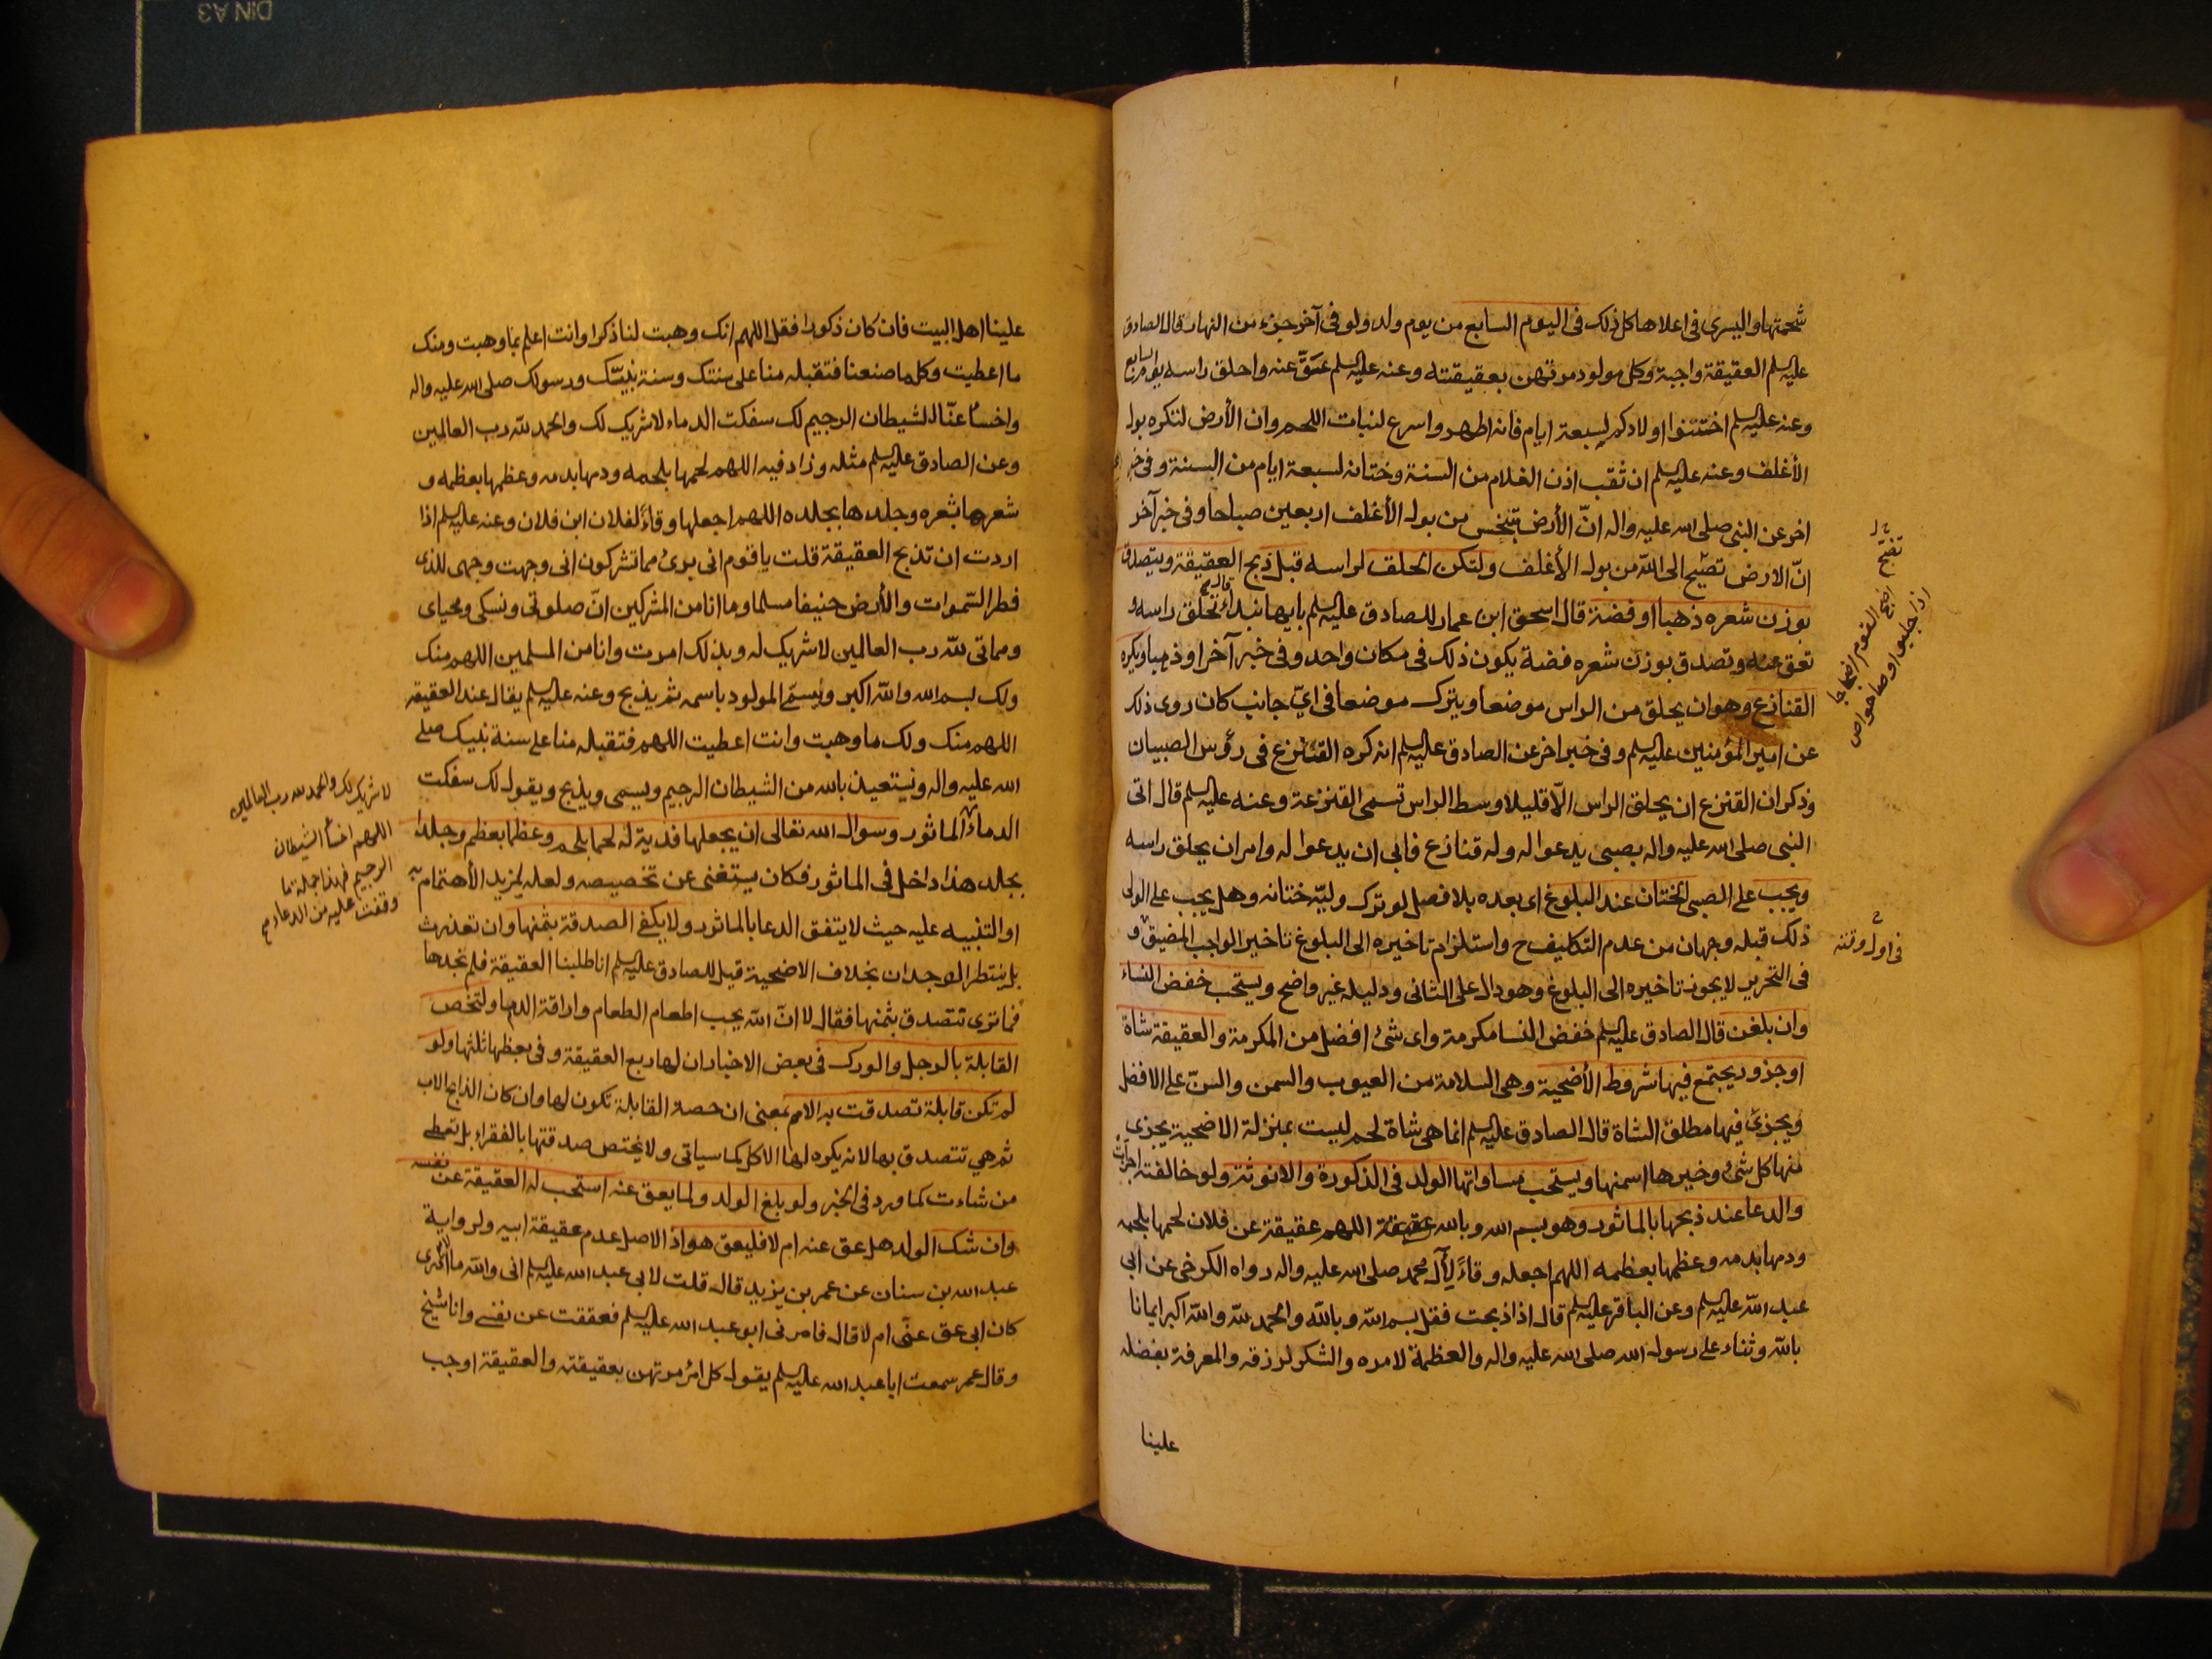 شحمتها واليسرى فى اعلاها كل ذلك فى اليوم السابع من يوم ولد ولو فى آخر جزء من النهار قال الصادق
عليه السلم العقيقة واجبة وكل مولود مرتهن بعقيقته وعنه عليه السلم عَقَّ عنه واحلق راسه يوم السابع
وعنه عليه السلم اختتنوا اولادكم لسبعة ايام فانه اطهر واسرع لنبات اللحم وان الأرض لتكره بول
الأغلف وعنه عليه السلم ان ثقب اذن الغلام من السنة وختانه لسبعة ايام من السنة وفى خبر
اخر عن النبى صلى الله عليه واله انّ الأرض تنجس من بول الأغلف اربعين صباحا وفى خبر آخر
انّ الارض تضجّ الى اللّه من بول الأغلف ولتكن الحلق لراسه قبل ذبح العقيقة ويتصدق
بوزن شعره ذهبا او فضة قال اسحق ابن عمار للصادق عليه السلم بايها نبدأ قال تحلق راسه و
تعق عنه وتصدق بوزن شعره فضة يكون ذلك فى مكان واحد وفى خبر آخر او ذهبا ويكره
القنازع وهو ان يحلق من الراس موضعا ويترك موضعا فى اىّ جانب كان روى ذلك
عن امير المؤمنين عليه السلم وفى خبر اخر عن الصادق عليه السلم انه كره القنزع فى رؤس الصبيان
وذكر ان القنزع ان يحلق الراس الّا قليلا وسط الراس تسمى القنزعة وعنه عليه السلم قال اتى
النبى صلى الله عليه واله بصبى يدعوا له وله قنازع فابى ان يدعوا له وامر ان يحلق راسه
ويجب على الصبى الختان عند البلوغ اى بعده بلا فصل لو ترك وليّه ختانه وهل يجب على الولى
ذلك قبله وجهان من عدم التكليف ح واستلزام تاخيره الى البلوغ تاخير الواجب المضيق و
فى التحرير لا يجوز تاخيره الى البلوغ وهو دال على الثانى ودليله غير واضح ويستحب خفض النساء
وان بلغن قال الصادق عليه السلم خفض النسا مكرمة واى شئ افضل من المكرمة والعقيقة شاة
او جزور يجتمع فيها شروط الأضحية وهى السلامة من العيوب والسمن والسنّ على الافضل
ويجزئ فيها مطلق الشاة قال الصادق عليه السلم انما هى شاة لحم ليست بمنزلة الاضحية يجزى
منها كل شئ وخيرها اسمنها ويستحب مساواتها الولد فى الذكورة والانوثة ولو خالفته اجزأت
والدعا عند ذبحها بالماثور وهو بسم الله وبالله عقيقة اللهم عقيقة عن فلان لحمها بلحمه
ودمها بدمه وعظمها بعظمه اللهم اجعله وقاءً لآل محمد صلى الله عليه واله رواه الكرخى عن ابى
عبد اللّه عليه السلم وعن الباقر عليه السلم قال اذا ذبحت فقل بسم اللّه وباللّه والحمد للّه واللّه اكبر ايمانا
باللّه وثناء على رسول الله صلى الله عليه واله والعظمة لامره والشكر لرزقه والمعرفة بفضله
علينا
تضجّ
اضجّ القوم اضجاجا
اذا جلبوا وصاحوا ص
فى اول وقته
علينا اهل البيت فان كان ذكورا فقل اللهم انك وهبت لنا ذكرا وانت اعلم بما وهبت ومنك
ما اعطيت وكل ما صنعنا فتقبله منا على سنتك وسنة نبيّك ورسولك صلى الله عليه واله
واخسأ عنّا الشيطان الرجيم لك سفكت الدماء لا شريك لك والحمد للّه رب العالمين
وعن الصادق عليه السلم مثله وزاد فيه اللهم لحمها بلحمه ودمها بدمه وعظمها بعظمه و
شعرها بشعره وجلدها بجلده اللهم اجعلها وقاءً لفلان ابن فلان وعنه عليه السلم اذا
اردت ان تذبح العقيقة قلت يا قوم انى برئ مما تشركون انى وجهت وجهى للذى
فطر السّموات والأرض حنيفا مسلما وما انا من المشركين انّ صلوتى ونسكى ومحياى
ومماتى للّه رب العالمين لا شريك له وبذلك امرت وانا من المسلمين اللهم منك
ولك بسم الله واللّه اكبر ويسمّى المولود باسمه ثم يذبح وعنه عليه السلم يقال عند العقيقة
اللهم منك ولك ما وهبت وانت اعطيت اللهم فتقبله منا على سنة نبيك صلى
الله عليه واله ونستعيذ بالله من الشيطان الرجيم ويسمى ويذبح ويقول لك سفكت
الدماء الماثور وسوال الله تعالى ان يجعلها فدية له لحما بلحم وعظما بعظم وجلدا
بجلد هذا داخل فى الماثور فكان يستغنى عن تخصيصه ولعله لمزيد الأهتمام به
او التنبيه عليه حيث لا يتفق الدعا بالماثور ولا يكفى الصدقة بثمنها وان تعذرت
بل ينتظر الوجدان بخلاف الاضحية قيل للصادق عليه السلم انا طلبنا العقيقة فلم نجدها
فما ترى نتصدق بثمنها فقال لا انّ اللّه يحب اطعام الطعام واراقة الدما ولتخص
القابلة بالرجل والورك فى بعض الاخبار ان لها ربع العقيقة وفى بعضها ثلثها ولو
لم تكن قابلة تصدقت به الام بمعنى ان حصة القابلة تكون لها وان كان الذابح الاب
ثم هى تتصدق بها لانه يكره لها الاكل كما سياتى ولا يختص صدقتها بالفقراء بل تعطى
من شاءت كما ورد فى الخبر ولو بلغ الولد ولما يعق عنه استحب له العقيقة عن نفسه
وان شك الولد هل عق عنه ام لا فليعق هو اذ الاصل عدم عقيقة ابيه ولرواية
عبد الله بن سنان عن عمر بن يزيد قال قلت لابى عبد الله عليه السلم انى واللّه ما ادرى
كان ابى عق عنّى ام لا قال فامرنى ابو عبد الله عليه السلم فعققت عن نفسى وانا شيخ
وقال عمر سمعت ابا عبد الله عليه السلم يقول كل امرْ مرتهن بعقيقته والعقيقة اوجب
لا شريك لك والحمد لله رب العالمين
اللهم اخسأ الشيطان
الرجيم فهذا جملة ما
وقفت عليه من الدعاء